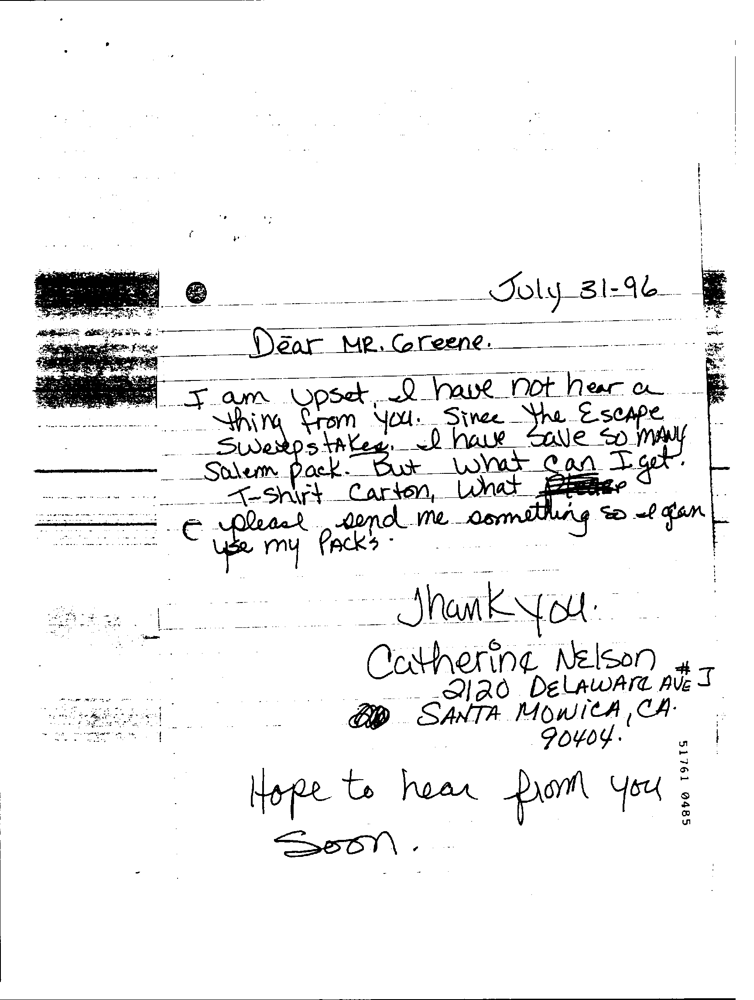 July 31-96
Dear MR. Greene.
I am upset, I have not hear a
thing from you. Since the Escape
Sweepstakes. I have save so MANY
Salem pack. But what can I get.
T-Shirt Carton, What
please send me something so I can
use my PACK's.
Thank you.
Catherine Nelson
2120 DELAWARE AVE # J
SANTA MONICA, CA.
90404.
Hope to hear from you
Soon.
51761 0485